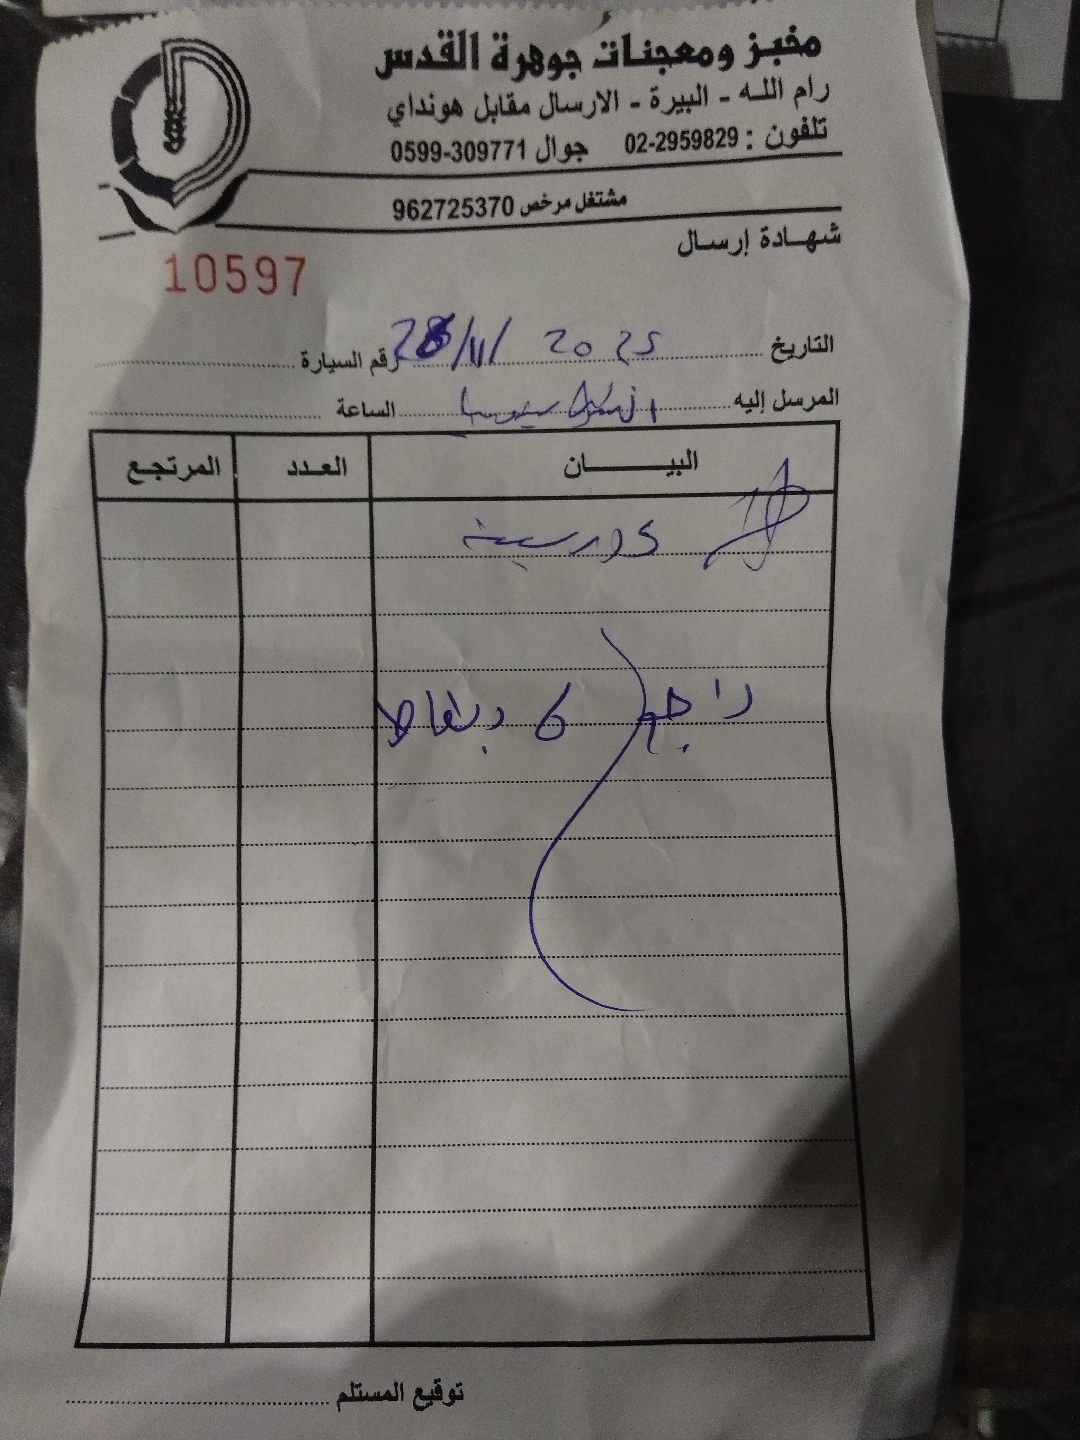 مخبز ومعجنات جوهرة القدس
رام الله - البيرة - الارسال مقابل هونداي
تلفون : 02-2959829 جوال 0599-309771
مشتغل مرخص 962725370
شهادة إرسال
10597
التاريخ 28/11/2025 رقم السيارة
المرسل إليه الساعة
البيان العدد المرتجع
راجع 6
توقيع المستلم